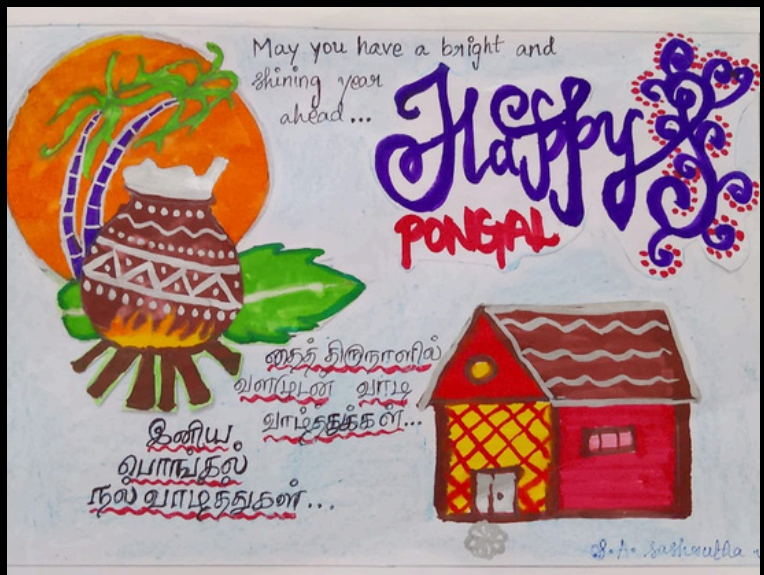 May you have a bright and
shining year
ahead...
Happy
PONGAL
தைத் திருநாளில்
வளமுடன் வாழ
வாழ்த்துக்கள்...
இனிய
பொங்கல்
நல் வாழ்த்துகள்...
S.A.